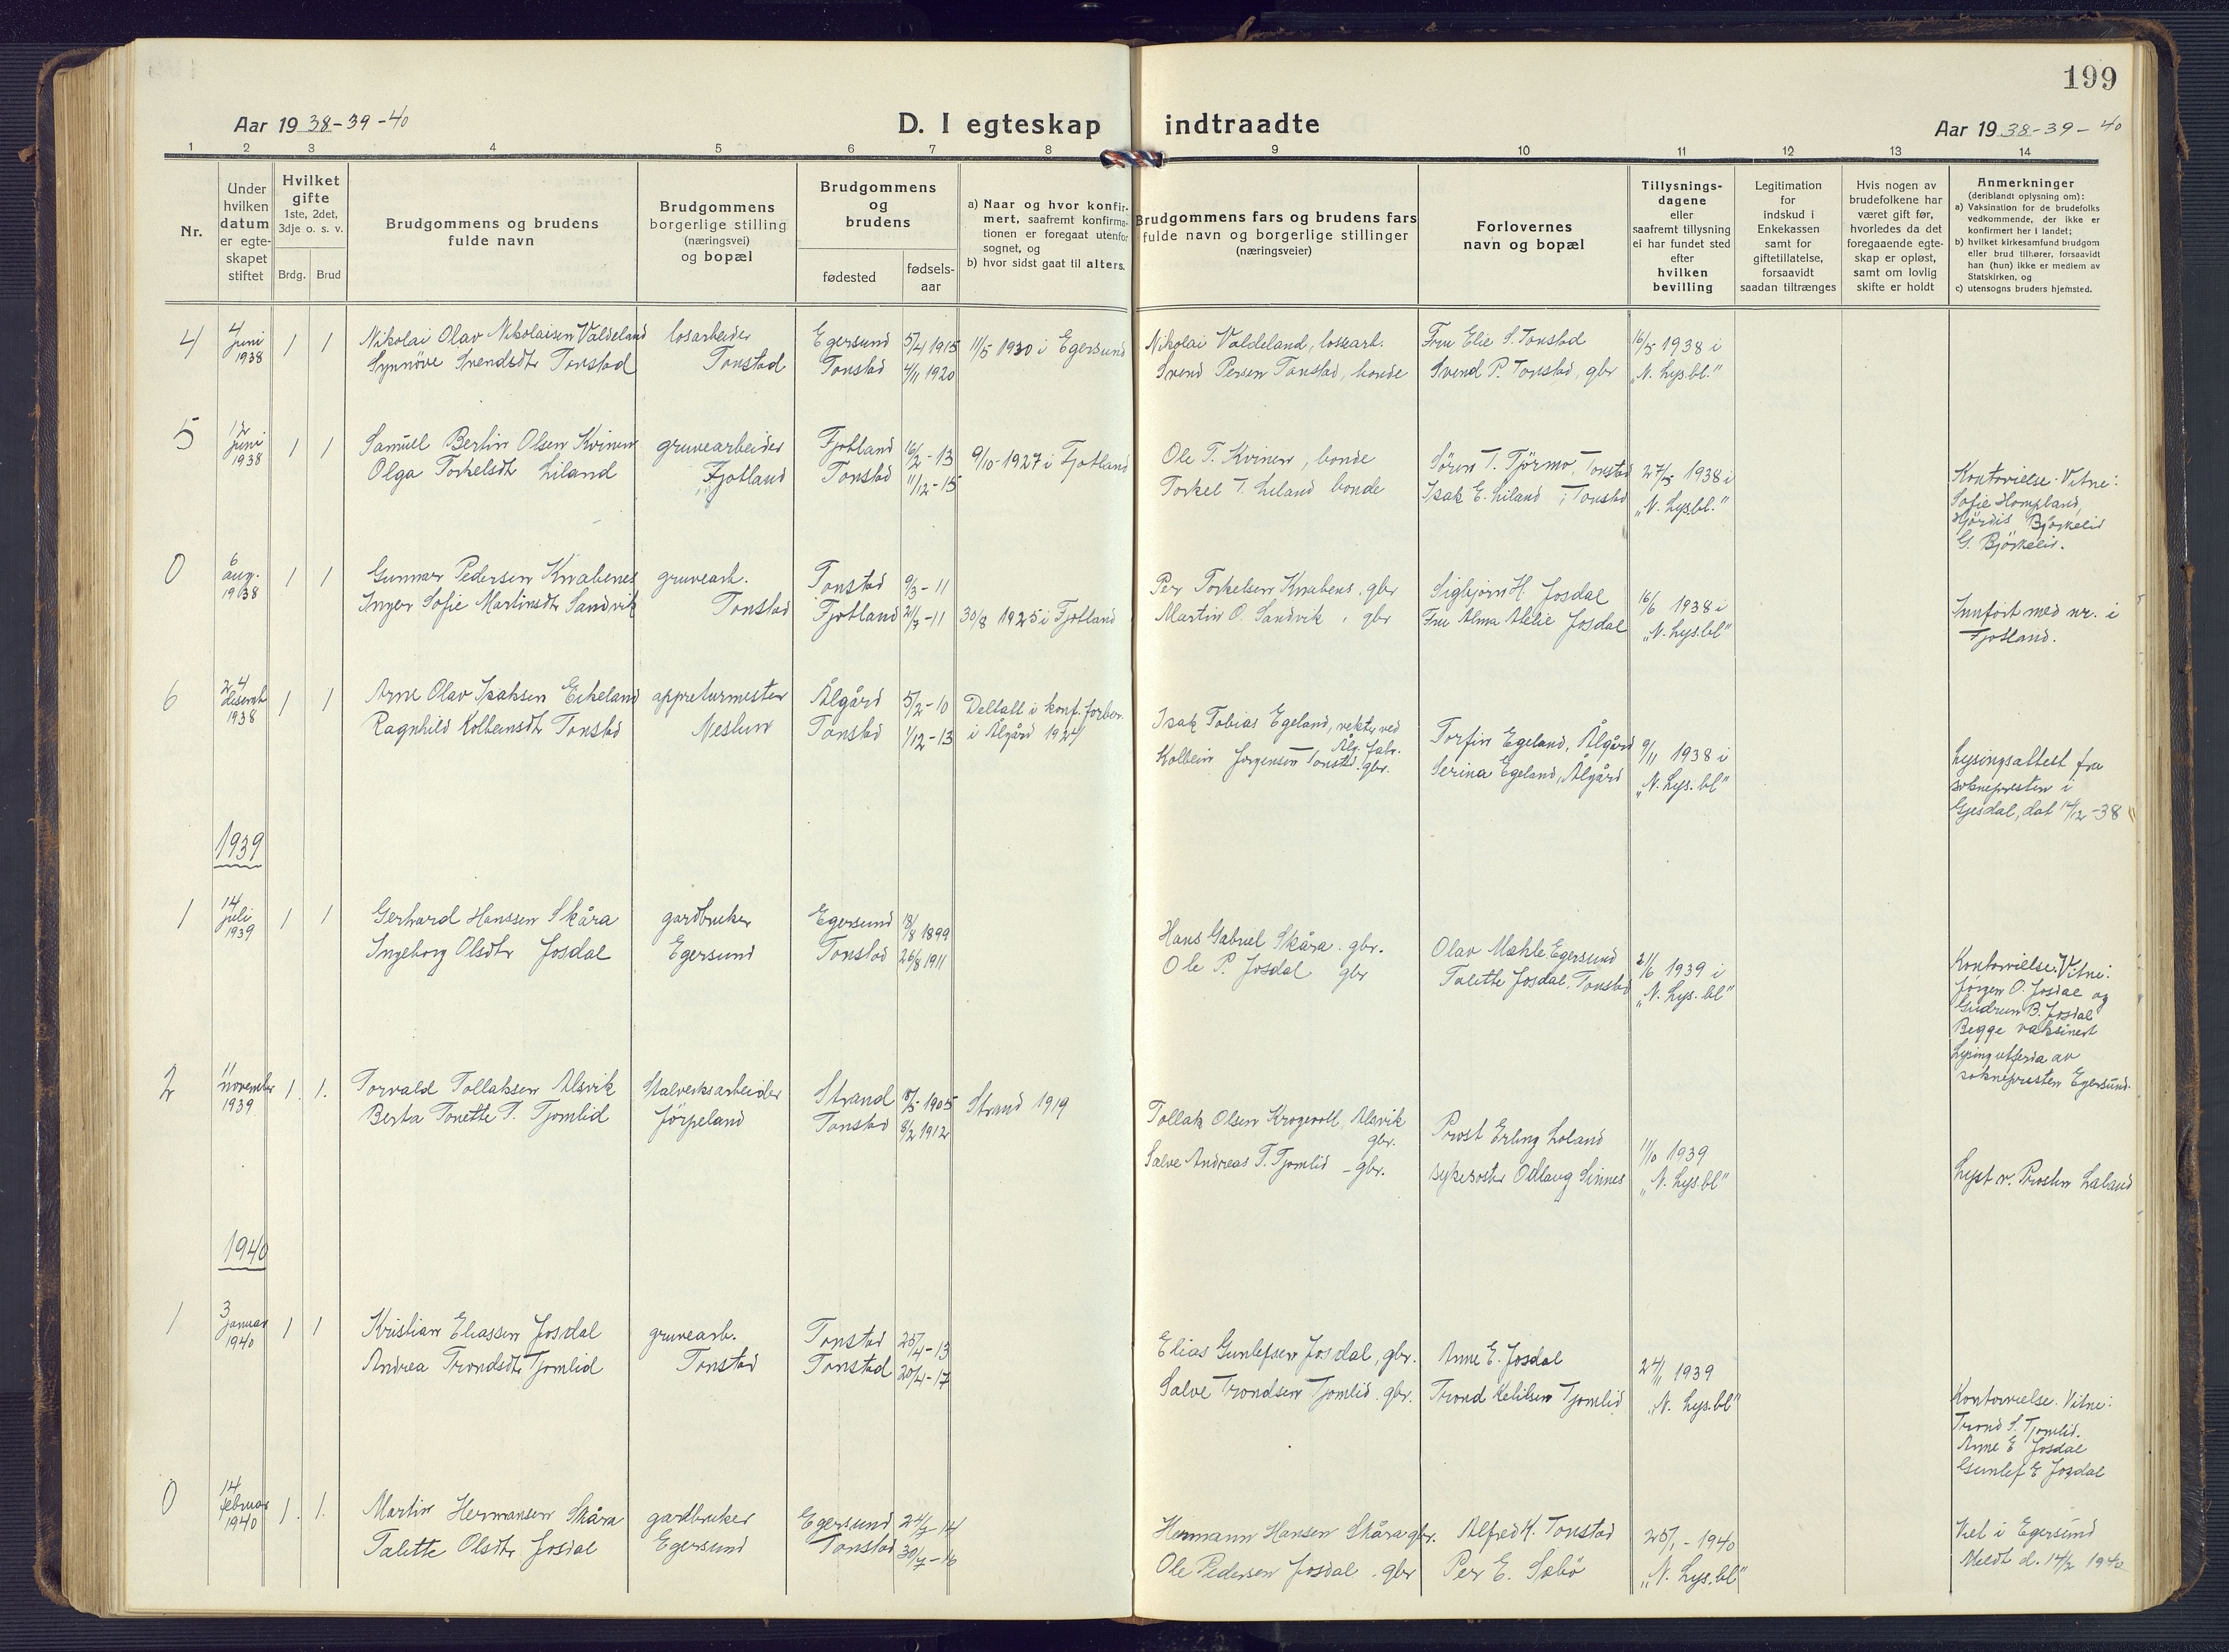 199
Aar 19 38-39-40
D. I egteskap indtraadte
Aar 19 38-39-40
1 2 3 4 5 6 7 8 9 10 11 12 13 14
Nr.
Under
hvilken
datum
er egte-
skapet
stiftet
Hvilket
gifte
1ste, 2det,
3dje o. s. v.
Brdg. Brud
Brudgommens og brudens
fulde navn
Brudgommens
borgerlige stilling
(næringsvei)
og bopæl
Brudgommens
og
brudens
fødested
fødsels-
aar
a) Naar og hvor konfir-
mert, saafremt konfirma-
tionen er foregaat utenfor
sognet, og
b) hvor sidst gaat til alters.
Brudgommens fars og brudens fars
fulde navn og borgerlige stillinger
(næringsveier)
Forlovernes
navn og bopæl
Tillysnings-
dagene
eller
saafremt tillysning
ei har fundet sted
efter
hvilken
bevilling
Legitimation
for
indskud i
Enkekassen
samt for
giftetillatelse,
forsaavidt
saadan tiltrænges
Hvis nogen av
brudefolkene har
været gift før,
hvorledes da det
foregaaende egte-
skap er opløst,
samt om lovlig
skifte er holdt
Anmerkninger
(deriblandt oplysning om):
a) Vaksination for de brudefolks
vedkommende, der ikke er
konfirmert her i landet;
b) hvilket kirkesamfund brudgom
eller brud tilhører, forsaavidt
han (hun) ikke er medlem av
Statskirken, og
c) utensogns bruders hjemsted.
4
4
juni
1938
1 1
Nikolai Olav Nikolaisen Valdeland
Synnöve Svendsdtr Tonstad
losarbeider
Tonstad
Egersund 5/4 1915
Tonstad 4/11 1920
11/5 1930 i Egersund
Nikolai Valdeland, lossearb.
Svend Persen Tonstad, bonde
Fru Elie S. Tonstad
Svend P. Tonstad, gbr
16/5 1938 i
"N. Lys.bl."
5
12
juni
1938
1 1
Samuel Bertin Olsen Kvinen
Olga Torkelsdtr Liland
gruvearbeider
Fjotland
Fjotland 16/2-13
Tonstad 11/12-15
9/10-1927 i Fjotland
Ole T. Kvinen, bonde
Torkel T. Liland bonde
Sören T. Tjörmo, Tonstad
Isak E. Liland, Tonstad
27/5 1938 i
"N. Lys.bl."
Kontorvielse. Vitne:
Sofie Hompland,
Hjördis Björkelid
G. Björkelid.
0
6
aug.
1938
1 1
Gunnar Pedersen Knabenes
Inger Sofie Martinsdtr Sandvik
gruvearb.
Tonstad
Tonstad 9/3-11
Fjotland 21/7-11
30/8 1925 i Fjotland
Per Torkelsen Knabenes, gbr
Martin O. Sandvik, gbr
Sigbjørn H. Josdal
Fru Alma Atelie Josdal
16/6 1938 i
"N. Lys.bl"
Innført med nr. i
Fjotland.
6
24
desemb
1938
1 1
Arne Olav Isaksen Eikeland
Ragnhild Kolbeinsdtr Tonstad
appreturmester
Nestun
Ålgård 5/2-10
Tonstad 1/12-13
Deltatt i konf. forber.
i Ålgård 1924
Isak Tobias Egeland, vekter ved
Ålg. fabr.
Kolbein Jørgensen Tonstad. gbr.
Torfin Egeland, Ålgård
Serina Egeland, Ålgård
9/11 1938 i
"N. Lys. bl"
Lysingsattest fra
soknepresten i
Gjesdal, dat 14/12-38
1939
1
14
juli
1939
1 1
Gerhard Hanssen Skåra
Ingeborg Olsdtr Josdal
gardbruker
Egersund
Egersund 18/8 1899
Tonstad 26/8 1911
Hans Gabriel Skåra. gbr.
Ole P. Josdal gbr
Olav Mæhle Egersund
Talette Josdal, Tonstad
21/6 1939 i
"N. Lys. bl"
Kontorvielse. Vitne:
Jörgen O. Josdal og
Gudrun B. Josdal
Begge vaksinert
Lysing utferda av
soknepresten Egersund.
2
11
november
1939
1. 1.
Torvald Tollaksen Alsvik
Berta Tonette T. Tjomlid
Stalverksarbeider
Jörpeland
Strand 18/5 1905
Tonstad 8/2 1912
Strand 1919
Tollak Olsen Krogevoll, Alsvik
gbr.
Salve Andreas T. Tjomlid - gbr.
Prost Erling Laland
sykesøster Odlaug Sinnes
11/10 1939
"N. Lys.bl"
Lyst v. Prosten Laland
1940
1
3
januar
1940
1 1
Kristian Eliassen Josdal
Andrea Trondsdtr Tjomlid
gruvearb.
Tonstad
Tonstad 25/4-13
Tonstad 20/4-17
Elias Gunlefsen Josdal, gbr.
Salve Trondsen Tjomlid. gbr.
Anne E. Josdal
Trond Ketilsen Tjomlid
24/11 1939
"N. Lys.bl"
Kontorvielse. Vitne:
Trond S. Tjomlid.
Anne E Josdal
Gunlef E Josdal
0
14
februar
1940
1. 1.
Martin Hermansen Skåra
Talette Olsdtr Josdal
gardbruker
Egersund
Egersund 24/7-14
Tonstad 30/7-16
Hermann Hansen Skåra gbr.
Ole Pedersen Josdal. gbr
Alfred H. Tonstad
Per E. Sæbö
25/1-1940
"N. Lys.bl"
Viel i Egersund
Meldt d. 14/2 1940